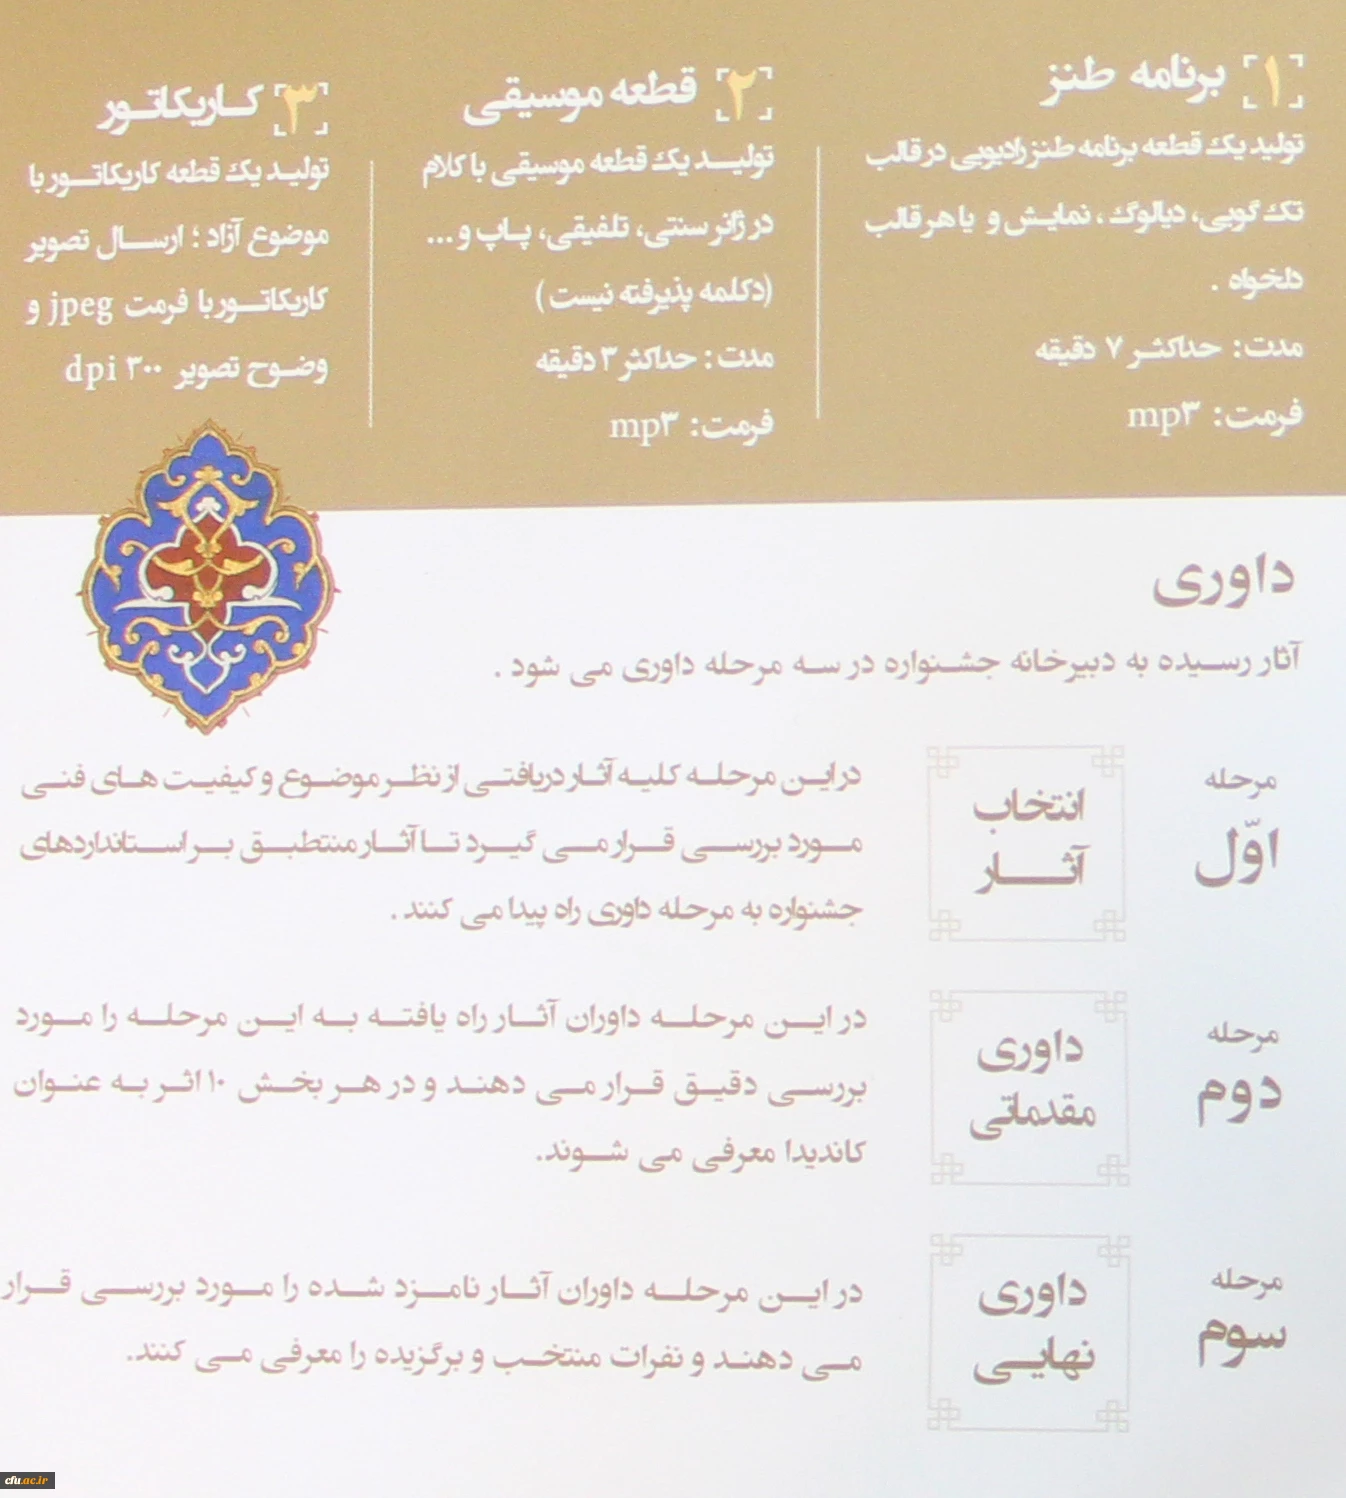 ۱ برنامه طنز
تولید یک قطعه برنامه طنز رادیویی در قالب
تک گویی، دیالوگ، نمایش و یا هر قالب
دلخواه .
مدت: حداکثر ۷ دقیقه
فرمت: mp۳
۲ قطعه موسیقی
تولید یک قطعه موسیقی با کلام
در ژانر سنتی، تلفیقی، پاپ و ...
(دکلمه پذیرفته نیست)
مدت: حداکثر ۳ دقیقه
فرمت: mp۳
۳ کاریکاتور
تولید یک قطعه کاریکاتور با
موضوع آزاد ؛ ارسال تصویر
کاریکاتور با فرمت jpeg و
وضوح تصویر ۳۰۰ dpi
داوری
آثار رسیده به دبیرخانه جشنواره در سه مرحله داوری می شود .
مرحله
اوّل
انتخاب
آثار
در این مرحله کلیه آثار دریافتی از نظر موضوع و کیفیت های فنی
مورد بررسی قرار می گیرد تا آثار منتطبق بر استانداردهای
جشنواره به مرحله داوری راه پیدا می کنند .
مرحله
دوم
داوری
مقدماتی
در این مرحله داوران آثار راه یافته به این مرحله را مورد
بررسی دقیق قرار می دهند و در هر بخش ۱۰ اثر به عنوان
کاندیدا معرفی می شوند.
مرحله
سوم
داوری
نهایی
در این مرحله داوران آثار نامزد شده را مورد بررسی قرار
می دهند و نفرات منتخب و برگزیده را معرفی می کنند.
cfu.ac.ir